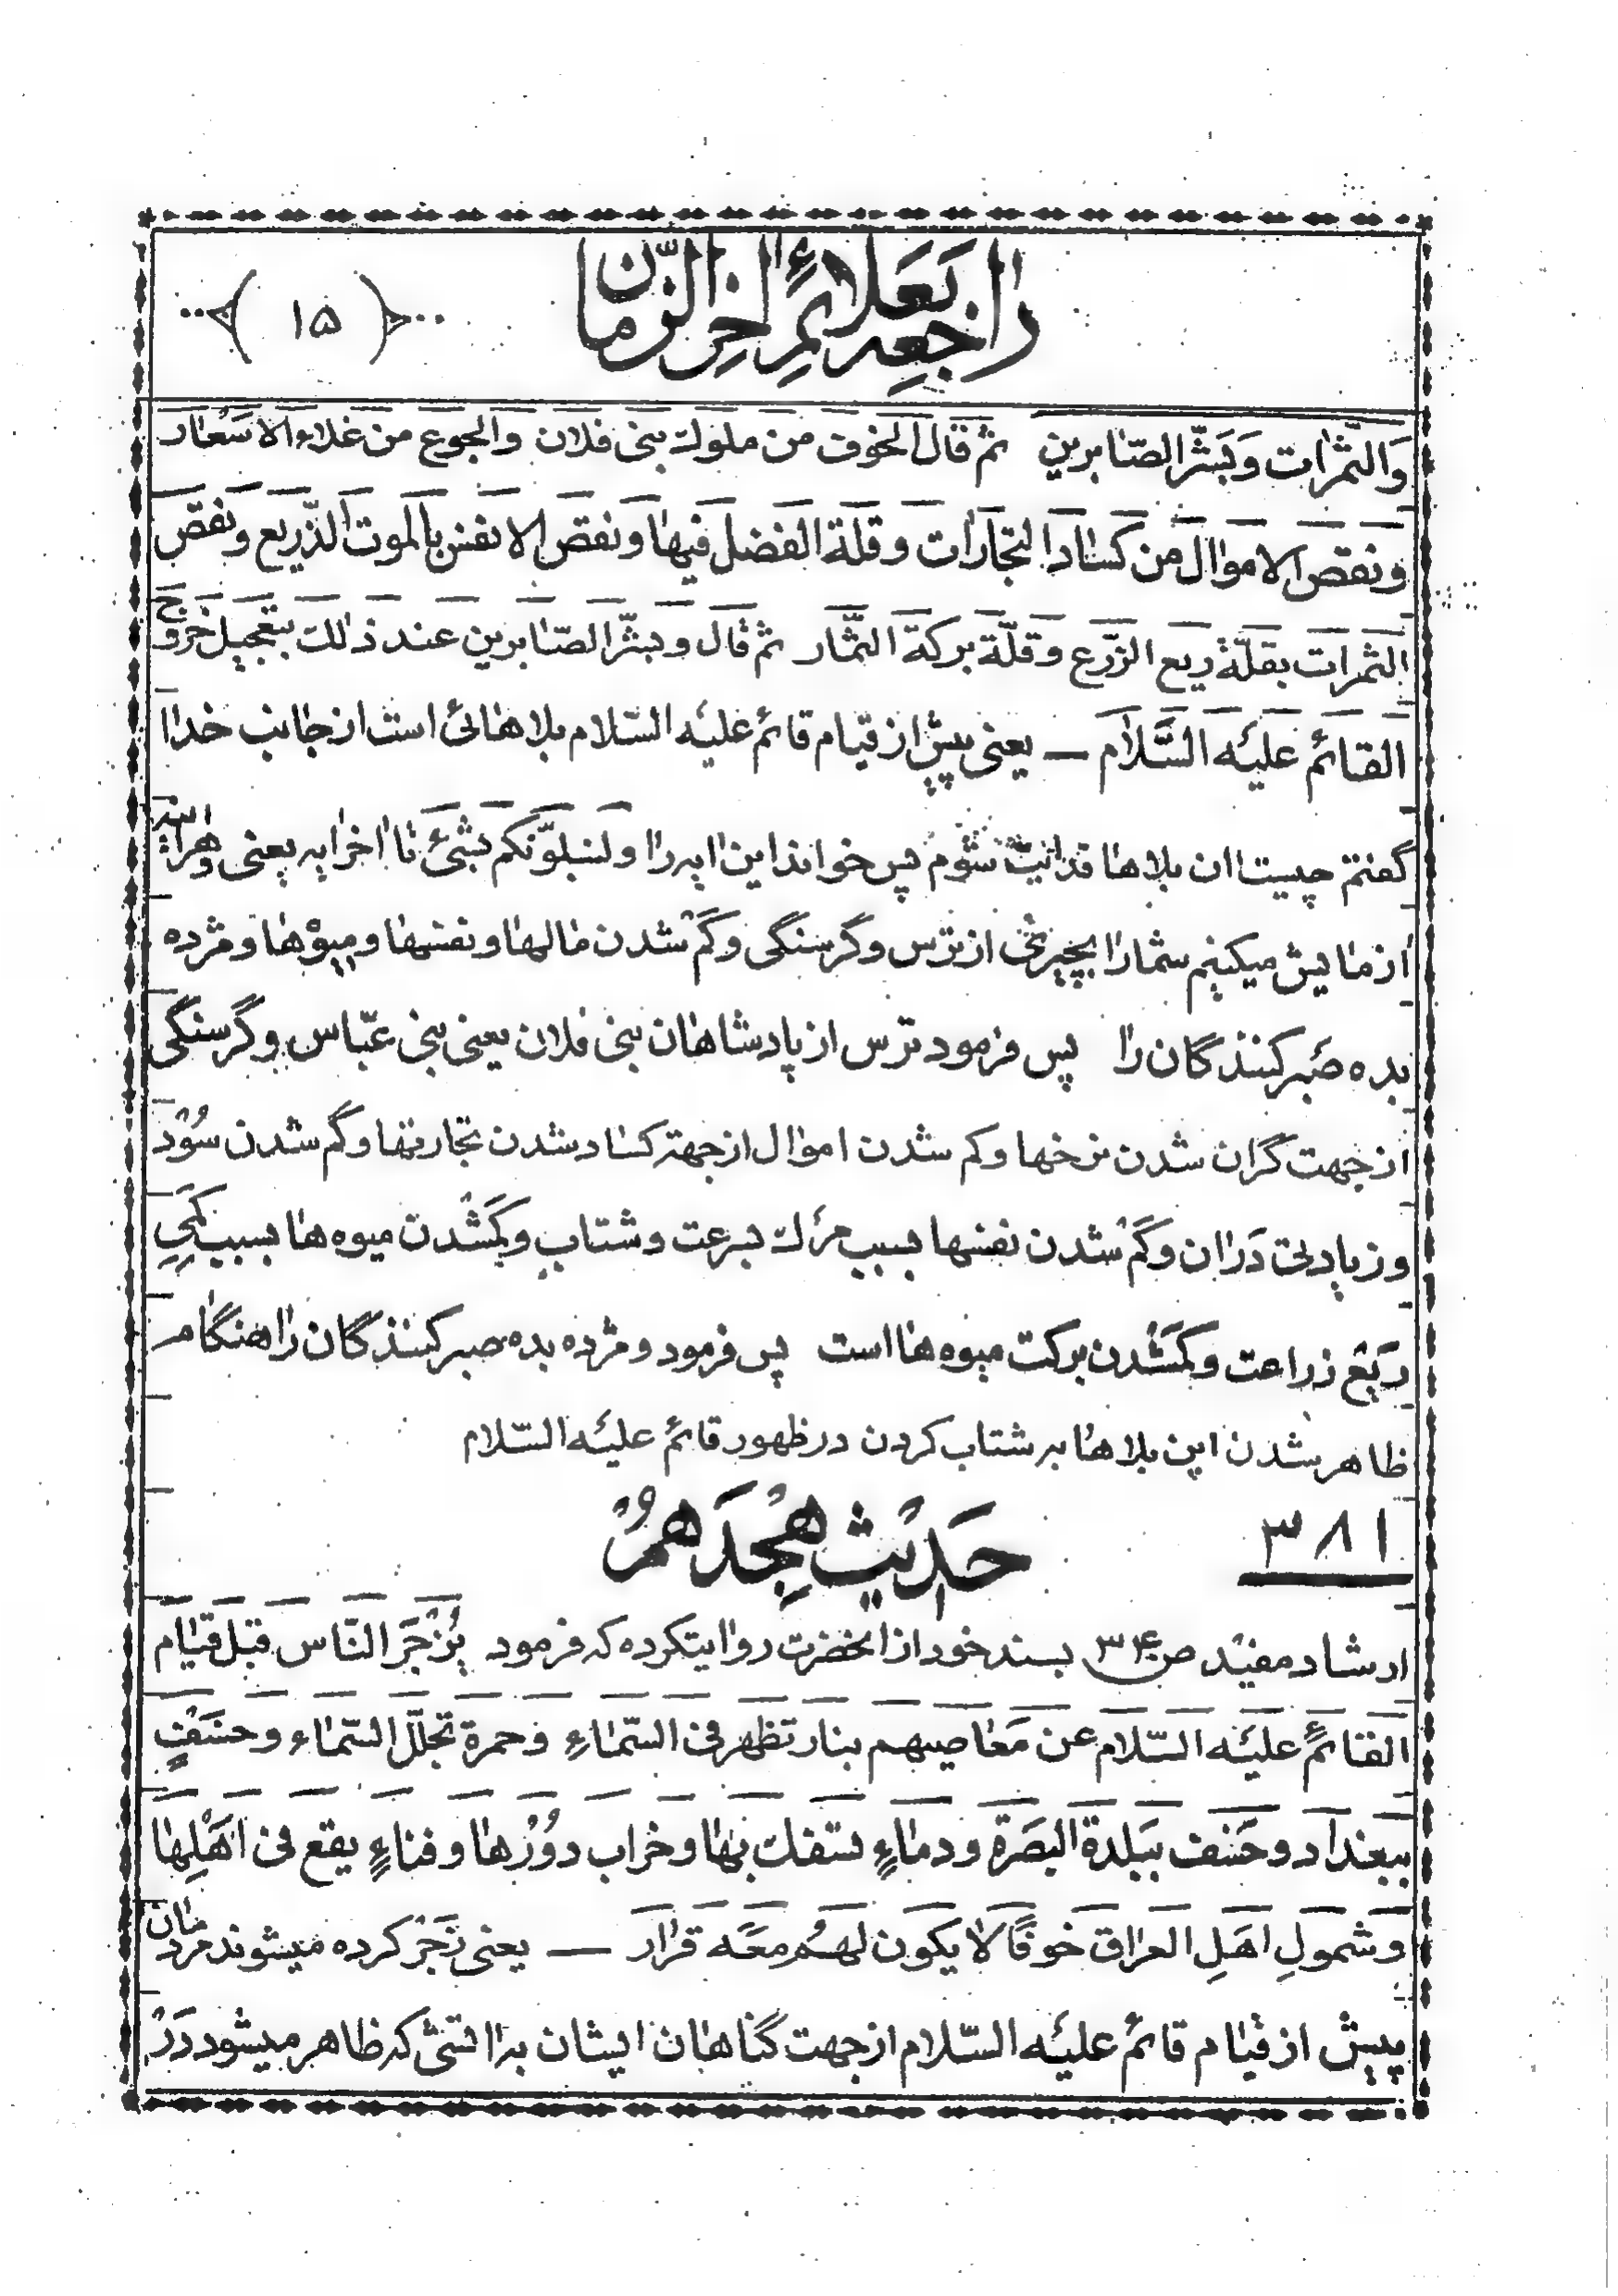 راجعه بعلائم اخر الزمان
(۱۵)
وَالثَّمَراتِ وَبَشِّرِ الصّابرین ثم قال الخوف من ملوك بنی فلان والجوع من غلاء الاسَعٰار
ونقص الاموٰال من کسٰاد التجّارٰات وقلّة الفضل فیهٰا ونقص الانفس بالموت الذّریع ونقص
الثمرات بقلّة ریع الزّرع وقلّة برکة الثّمار ثم قال وبشّر الصّابرین عند ذٰلك بتعجیل خروج
القائم علیَه السَّلام — یعنی پیش از قیام قائم علیَه السّلام بلاهائی است از جانب خدا
گفتم چیست ان بلاها فدایت شوم پس خواند این ایه را ولنبلونّکم بشیٔ تا اخر ایه یعنی وهراینه
ازمایش میکنیم شمارا بچیزی از ترس وگرسنگی وکم شدن مالها ونفسها ومیوْها ومژده
بده صَبر کنندگان را پس فرمود ترس از پادشاهان بنی فلان یعنی بنی عبّاس وگرسنگی
ازجهت گران شدن نرخها وکم شدن اموال ازجهته کساد شدن تجارتها وکم شدن سُوْد
وزیادتی دَران وکم شدن نفسها بسبب مرك بسرعت وشتاب وکمشدن میوه ها بسبب کمیِ
ریَع زراعت وکمشدن برکت میوه ها است پس فرمود ومژده بده صبر کنندگان را هنگام
ظاهر شدن این بلاها به شتاب کردن در ظهور قائم علیَه السّلام
۳۸۱ حَدیْث هِجْدَهُمْ
ارشاد مفیْد ص۳۴۰ بسند خود از انحضرت روایتکرده که فرمود یُزْجَرُ النّاس قبل قیام
القائمِ علیَه السّلام عن مَعاصیهم بنار تظهر فی السّماءِ وحمرة تجلّل السّماء وخسَفٍ
ببغداد وخَسف ببَلدة البصَرة ودماءٍ تسفك بها وخراب دُوْرها وفناءٍ یقع فی اهَلِها
وشمولِ اهَلِ العراق خوفًا لا یکون لهُم معَه قرار — یعنی زَجْر کرده میشوند مردمان
پیش از قیام قائم علیَه السّلام ازجهت گناهان ایشان به اتشی که ظاهر میشود دَرْ